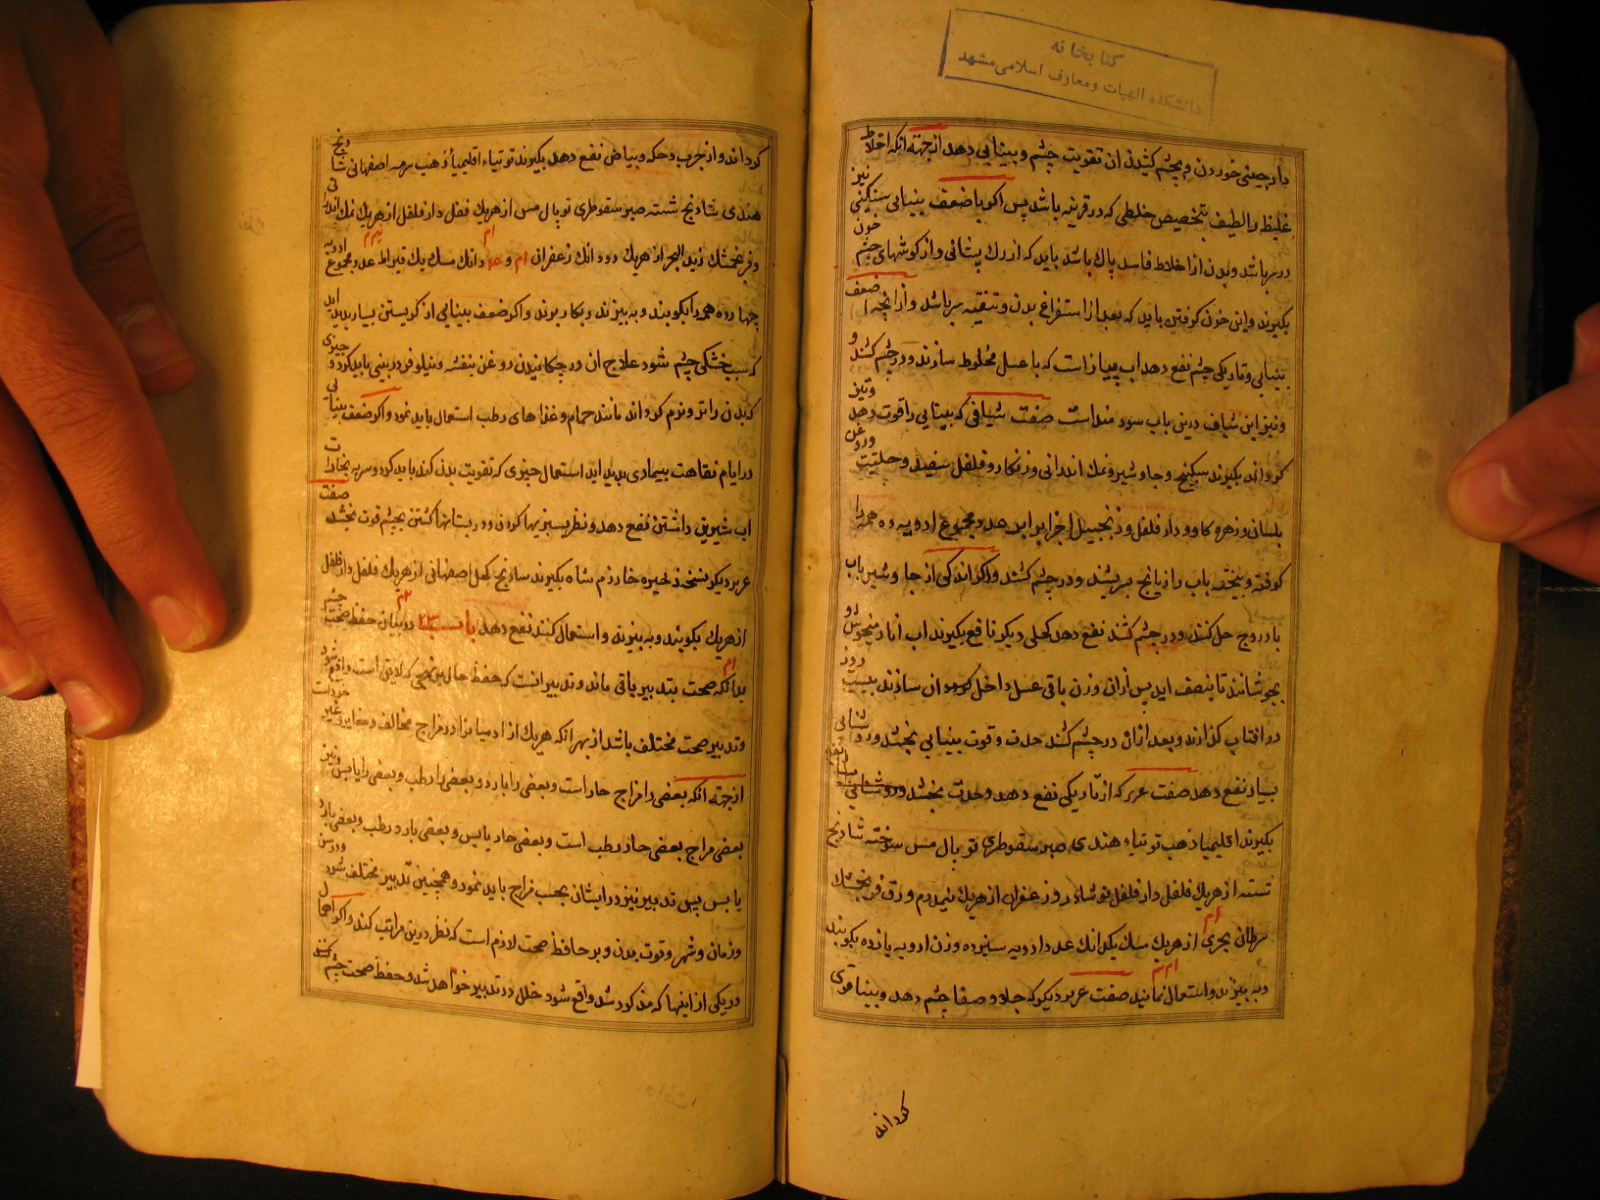 کتابخانه
دانشکده الهیات و معارف اسلامی مشهد
دارچینی خوردن و بچشم کشیدن ان تقویت چشم و بینایی دهد ازجهة انکه اخلاط
غلیظ را لطیف بتخصیص خلطی که در قرنیه باشد پس اکر با ضعف بینایی سنکینی نیز
در سر باشد و بدن از اخلاط فاسد پاک باشد باید که از رک پیشانی و از کوشهای چشم خون
بکیرند و این خون کرفتن باید که بعد از استفراغ بدن و تنقیه سر باشد و از انچه ضعف
بینایی و تاریکی چشم نفع دهد اب پیاز است که با عسل مخلوط سازند و در چشم کشند و
و نیز این شیاف درین باب سودمند است صفت شیافی که بینایی را قوت دهد و تیز
کرداند بکیرند سکبینج و جاوشیر و نمک اندرانی و زنکار و فلفل سفید و حلتیت و روغن
بلسان و زهره کاو و دار فلفل و زنجبیل اجزا برابر عدد مجموع ادویه ده همه را
کوفته و بیخته باب رازیانج بسریشند و در چشم کشند واکر اندکی از جاوشیر باب
بادروج حل کنند و در چشم کشند نفع دهد کحلی دیکر نافع بکیرند اب انار
بجوشانند تا بنصف اید پس ازان وزن باقی عسل داخل کرده ان سازند بیست روز
در افتاب کذارند و بعد ازان در چشم کشند حدت و قوت بینایی بخشد و روشنایی
بسیار نفع دهد صفت عزیز که از تاریکی نفع دهد و حدت بخشد
بکیرند اقلیمیا ذهب توتیاء هندی صبر سقوطری توبال مس سوخته شادنج
شسته از هریک فلفل دار فلفل نوشادر و زعفران از هریک نیمدرم ورق فرنجمشک
سرطان بحری ام از هریک مسک یکدانک عدد ادویه سیزده وزن ادویه یازده بکوبند
و به بیزند و استعمال نمایند صفت عزیز دیکر که جلا و صفا چشم دهد و بینا قوی
کرداند
کرداند و از جرب و حکه و بیاض نفع دهد بکیرند توتیاء اقلیمیا ذهب سرمه اصفهانی شادنج
هندی شادنج شسته صبر سقوطری توبال مس از هریک فلفل دار فلفل از هریک نمک
و فرنجمشک زبد البحر از هریک دو دانک زعفران ام و دانک مسک یک قیراط عدد مجموع ادویه
چهارده همه را بکوبند و به بیزند و بکار برند و اکر ضعف بینایی از کریستن بسیار پدید اید
که سبب خشکی چشم شود علاج ان در چکانیدن روغن بنفشه و نیلوفر در بینی باید کرد و چیزی
که بدن را تر و نرم کرداند مانند حمام و غذاهای رطب استعمال باید نمود و اکر ضعف بینایی
در ایام نقاهت بیماری پدید اید استعمال چیزی که تقویت بدن کند باید کرد و سر به بخارات
اب شیرین داشتن نفع دهد و نظر بسبزیها کردن و در بستانها کشتن بچشم قوت بخشد صفت
عزیز دیکر نسخه ذخیره خارزم شاه بکیرند ساذنج کحل اصفهانی از هریک فلفل دار فلفل
از هریک بکوبند و به بیزند و استعمال کنند نفع دهد باب ۲۳ در بیان حفظ صحت چشم
بدانکه صحت بتدبیر باقی ماند و تدبیر انست که حفظ حال بدن
و تدبیر صحت مختلف باشد از بهر انکه هریک از ادمیانرا در مزاج مخالف و مغایرت
ازجهة انکه بعضی را مزاج حار است و بعضی را بارد و بعضی را رطب و بعضی را یابس و نیز
بعضی مزاج بعضی حار رطب است و بعضی حار یابس و بعضی بارد رطب و بعضی بارد
یابس پس تدبیر نیز در ایشان بحسب مزاج باید نمود و همچنین تدبیر مختلف شود
و زمان و شهر و قوت بدن و بر حافظ صحت لازم است که نظر درین مراتب کند و اکر اهمال
در یکی از اینها که مذکور شد واقع شود خلل در تدبیر خواهد شد و حفظ صحت چشم کنند